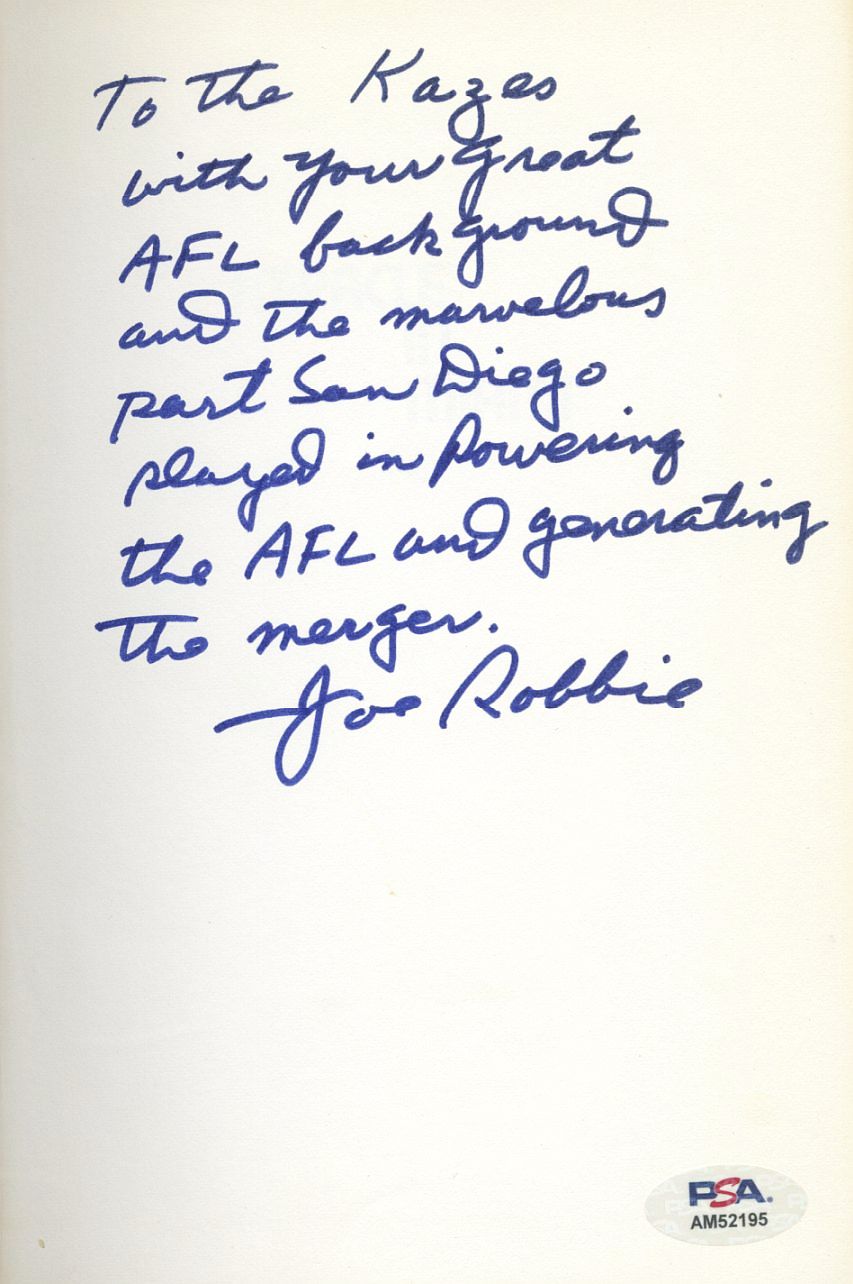 To the Kazes
with your great
AFL background
and the marvelous
part San Diego
played in powering
the AFL and generating
the merger.
Joe Robbie
PSA.
AM52195